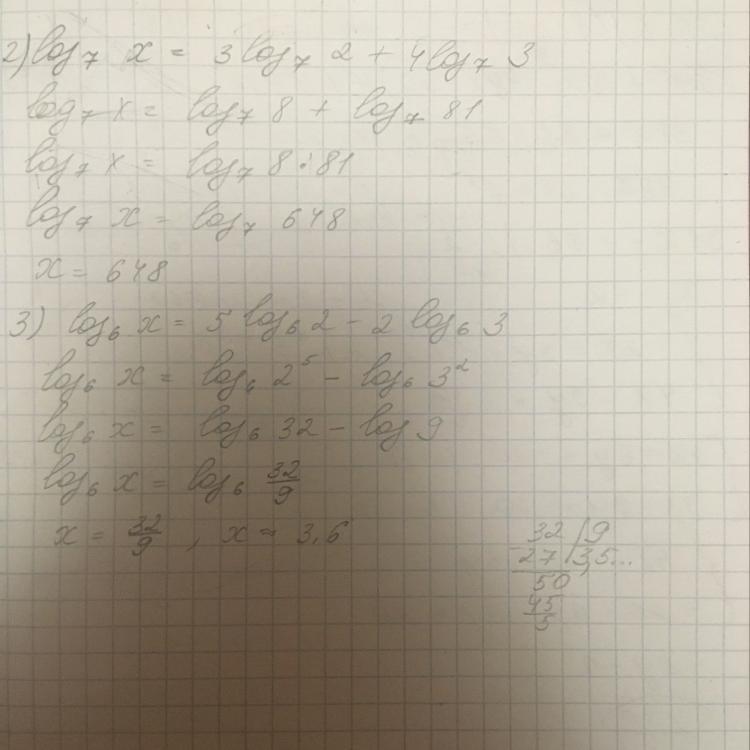 2) log₇ x = 3 log₇ 2 + 4 log₇ 3
log₇ x = log₇ 8 + log₇ 81
log₇ x = log₇ 8 · 81
log₇ x = log₇ 648
x = 648
3) log₆ x = 5 log₆ 2 - 2 log₆ 3
log₆ x = log₆ 2⁵ - log₆ 3²
log₆ x = log₆ 32 - log 9
log₆ x = log₆ 32/9
x = 32/9 , x ≈ 3,6
32 | 9
27 | 3,5...
50
45
5